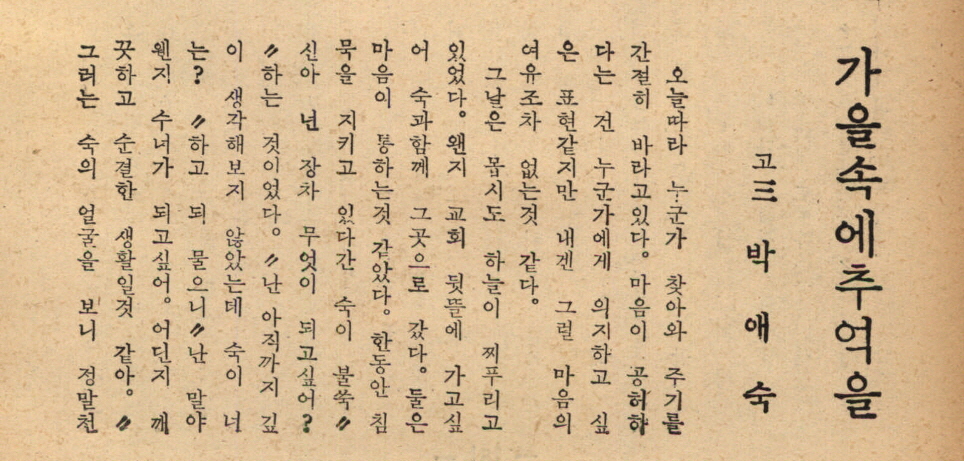 가을속에추억을
고三 박 애 숙
오늘따라 누군가 찾아와 주기를
간절히 바라고있다. 마음이 공허하
다는 건 누군가에게 의지하고 싶
은 표현같지만 내겐 그럴 마음의
여유조차 없는것 같다.
그날은 몹시도 하늘이 찌푸리고
있었다. 왠지 교회 뒷뜰에 가고싶
어 숙과함께 그곳으로 갔다. 둘은
마음이 통하는것 같았다. 한동안 침
묵을 지키고 있다간 숙이 불쑥〃
신아 넌 장차 무엇이 되고싶어?
〃하는 것이었다. 〃난 아직까지 깊
이 생각해보지 않았는데 숙이 너
는? 〃하고 되 물으니〃난 말야
웬지 수녀가 되고싶어. 어딘지 깨
끗하고 순결한 생활일것 같아. 〃
그러는 숙의 얼굴을 보니 정말천